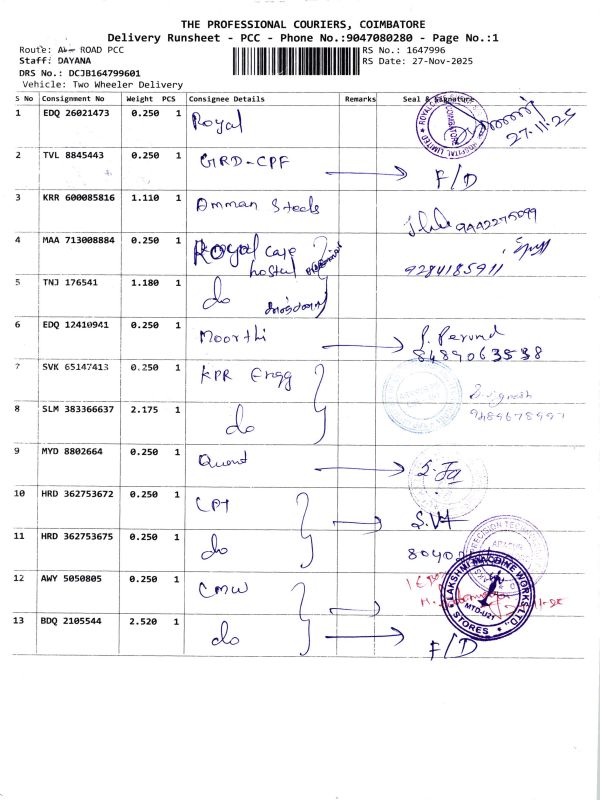 THE PROFESSIONAL COURIERS, COIMBATORE
Delivery Runsheet - PCC - Phone No.:9047080280 - Page No.:1
Route: ROAD PCC
RS No.: 1647996
Staff: DAYANA
RS Date: 27-Nov-2025
DRS No.: DCJB164799601
Vehicle: Two Wheeler Delivery
S No Consignment No Weight PCS Consignee Details Remarks Seal & Signature
1 EDQ 26021473 0.250 1 Royal
27-11-25
2 TVL 8845443 0.250 1 GRD-CPF F/D
3 KRR 600085816 1.110 1 Amman Steels
9442275099
4 MAA 713008884 0.250 1 Royal care
hostel
9284185911
5 TNJ 176541 1.180 1 do
6 EDQ 12410941 0.250 1 Moorthi
8489063538
7 SVK 65147413 0.250 1 KPR Engg
8 SLM 383366637 2.175 1 do
9 MYD 8802664 0.250 1
10 HRD 362753672 0.250 1 CPT
11 HRD 362753675 0.250 1 do
12 AWY 5050805 0.250 1 CMW
LAKSHMI MACHINE WORKS LTD.
MTD-U21
STORES
13 BDQ 2105544 2.520 1 do F/D